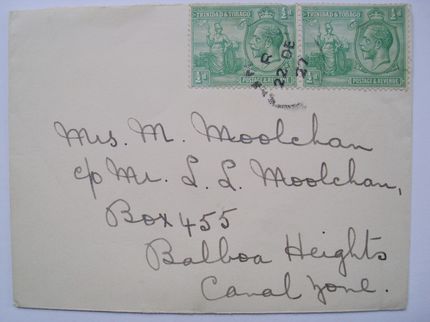 TRINIDAD & TOBAGO TRINIDAD & TOBAGO
½d POSTAGE & REVENUE ½d POSTAGE & REVENUE
R
22 DE
27
Mrs. M. Moolchan
c/o Mr. L. L. Moolchan,
Box 455
Balboa Heights
Canal Zone.